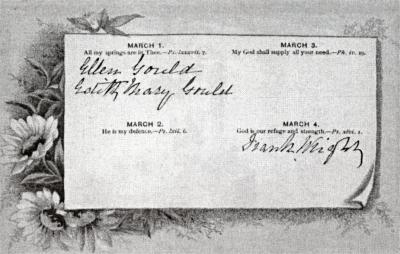 MARCH 1.
All my springs are in Thee.—Ps. lxxxvii. 7.
Ellen Gould
Edith Mary Gould
MARCH 2.
He is my defence.—Ps. lxii. 6.
MARCH 3.
My God shall supply all your need.—Ph. iv. 19.
MARCH 4.
God is our refuge and strength.—Ps. xlvi. 1.
Frank Wright